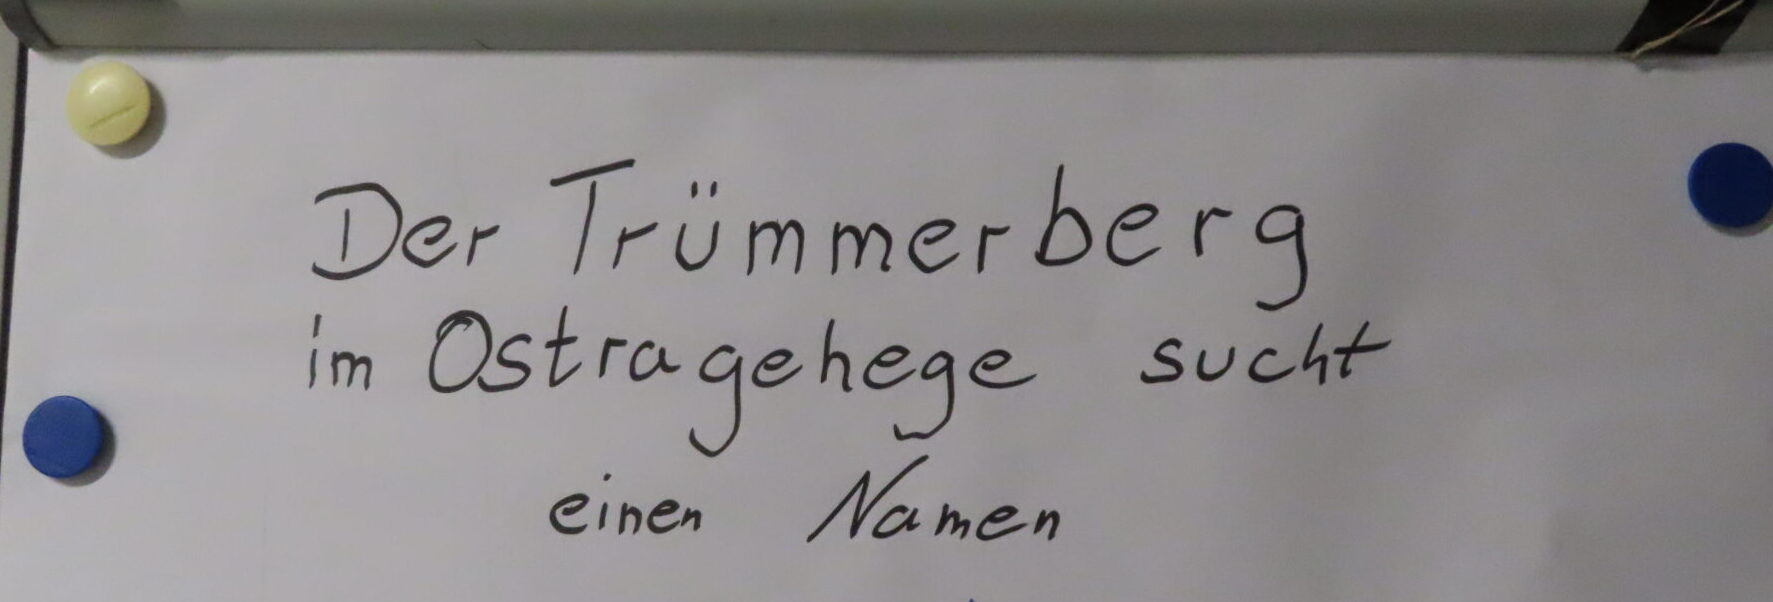 Der Trümmerberg
im Ostragehege sucht
einen Namen